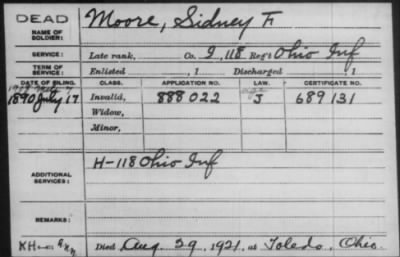 DEAD
NAME OF SOLDIER: Moore, Sidney F.
SERVICE: Late rank, Co. I, 118 Reg't Ohio Inf
TERM OF SERVICE: Enlisted , 1 Discharged , 1
DATE OF FILING. CLASS. APPLICATION NO. LAW. CERTIFICATE NO.
1890 July 17 Invalid, 888022 J 689131
Widow,
Minor,
ADDITIONAL SERVICES: H-118 Ohio Inf
REMARKS:
Died Aug. 29, 1921, at Toledo, Ohio.